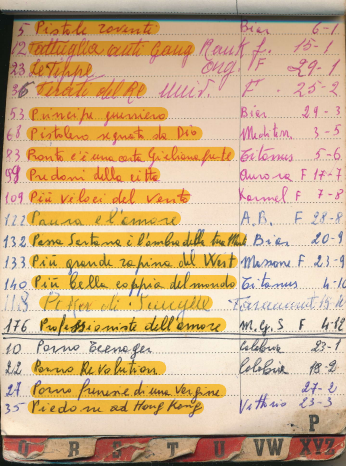 5 Pistole roventi Biar 6-1
12 Pattuglia anti gang Mank f. 15-1
23 Le Tippe ong. F 29-1
36 Pirati del Re Univ. F. 25-2
53 Principe guerriero Biar 29-3
68 Pistolero segnato da Dio Mediterr. 3-5
93 Pronto c'è una certa Giuliana per te Titanus 5-6
99 Predoni della città Aurora F 17-7
109 Più veloci del vento Karmel F 7-8
122 Paura e l'amore A.B. F 28-8
132 Passa Sartana è l'ombra della tua Morte Biar 20-9
133 Più grande rapina del West Messone F. 23-9
140 Più bella coppia del mondo Titanus 4-10
Poker di
176 Professioniste dell'amore M.G.S F 4-12
10 Porno Teenager Calabria 23-1
22 Porno Revolution Calabria 18-2
27 Porno di una vergine 27-2
35 Piedone ad Hong Kong Vittorio 23-3
P
Q R S T U VW XYZ